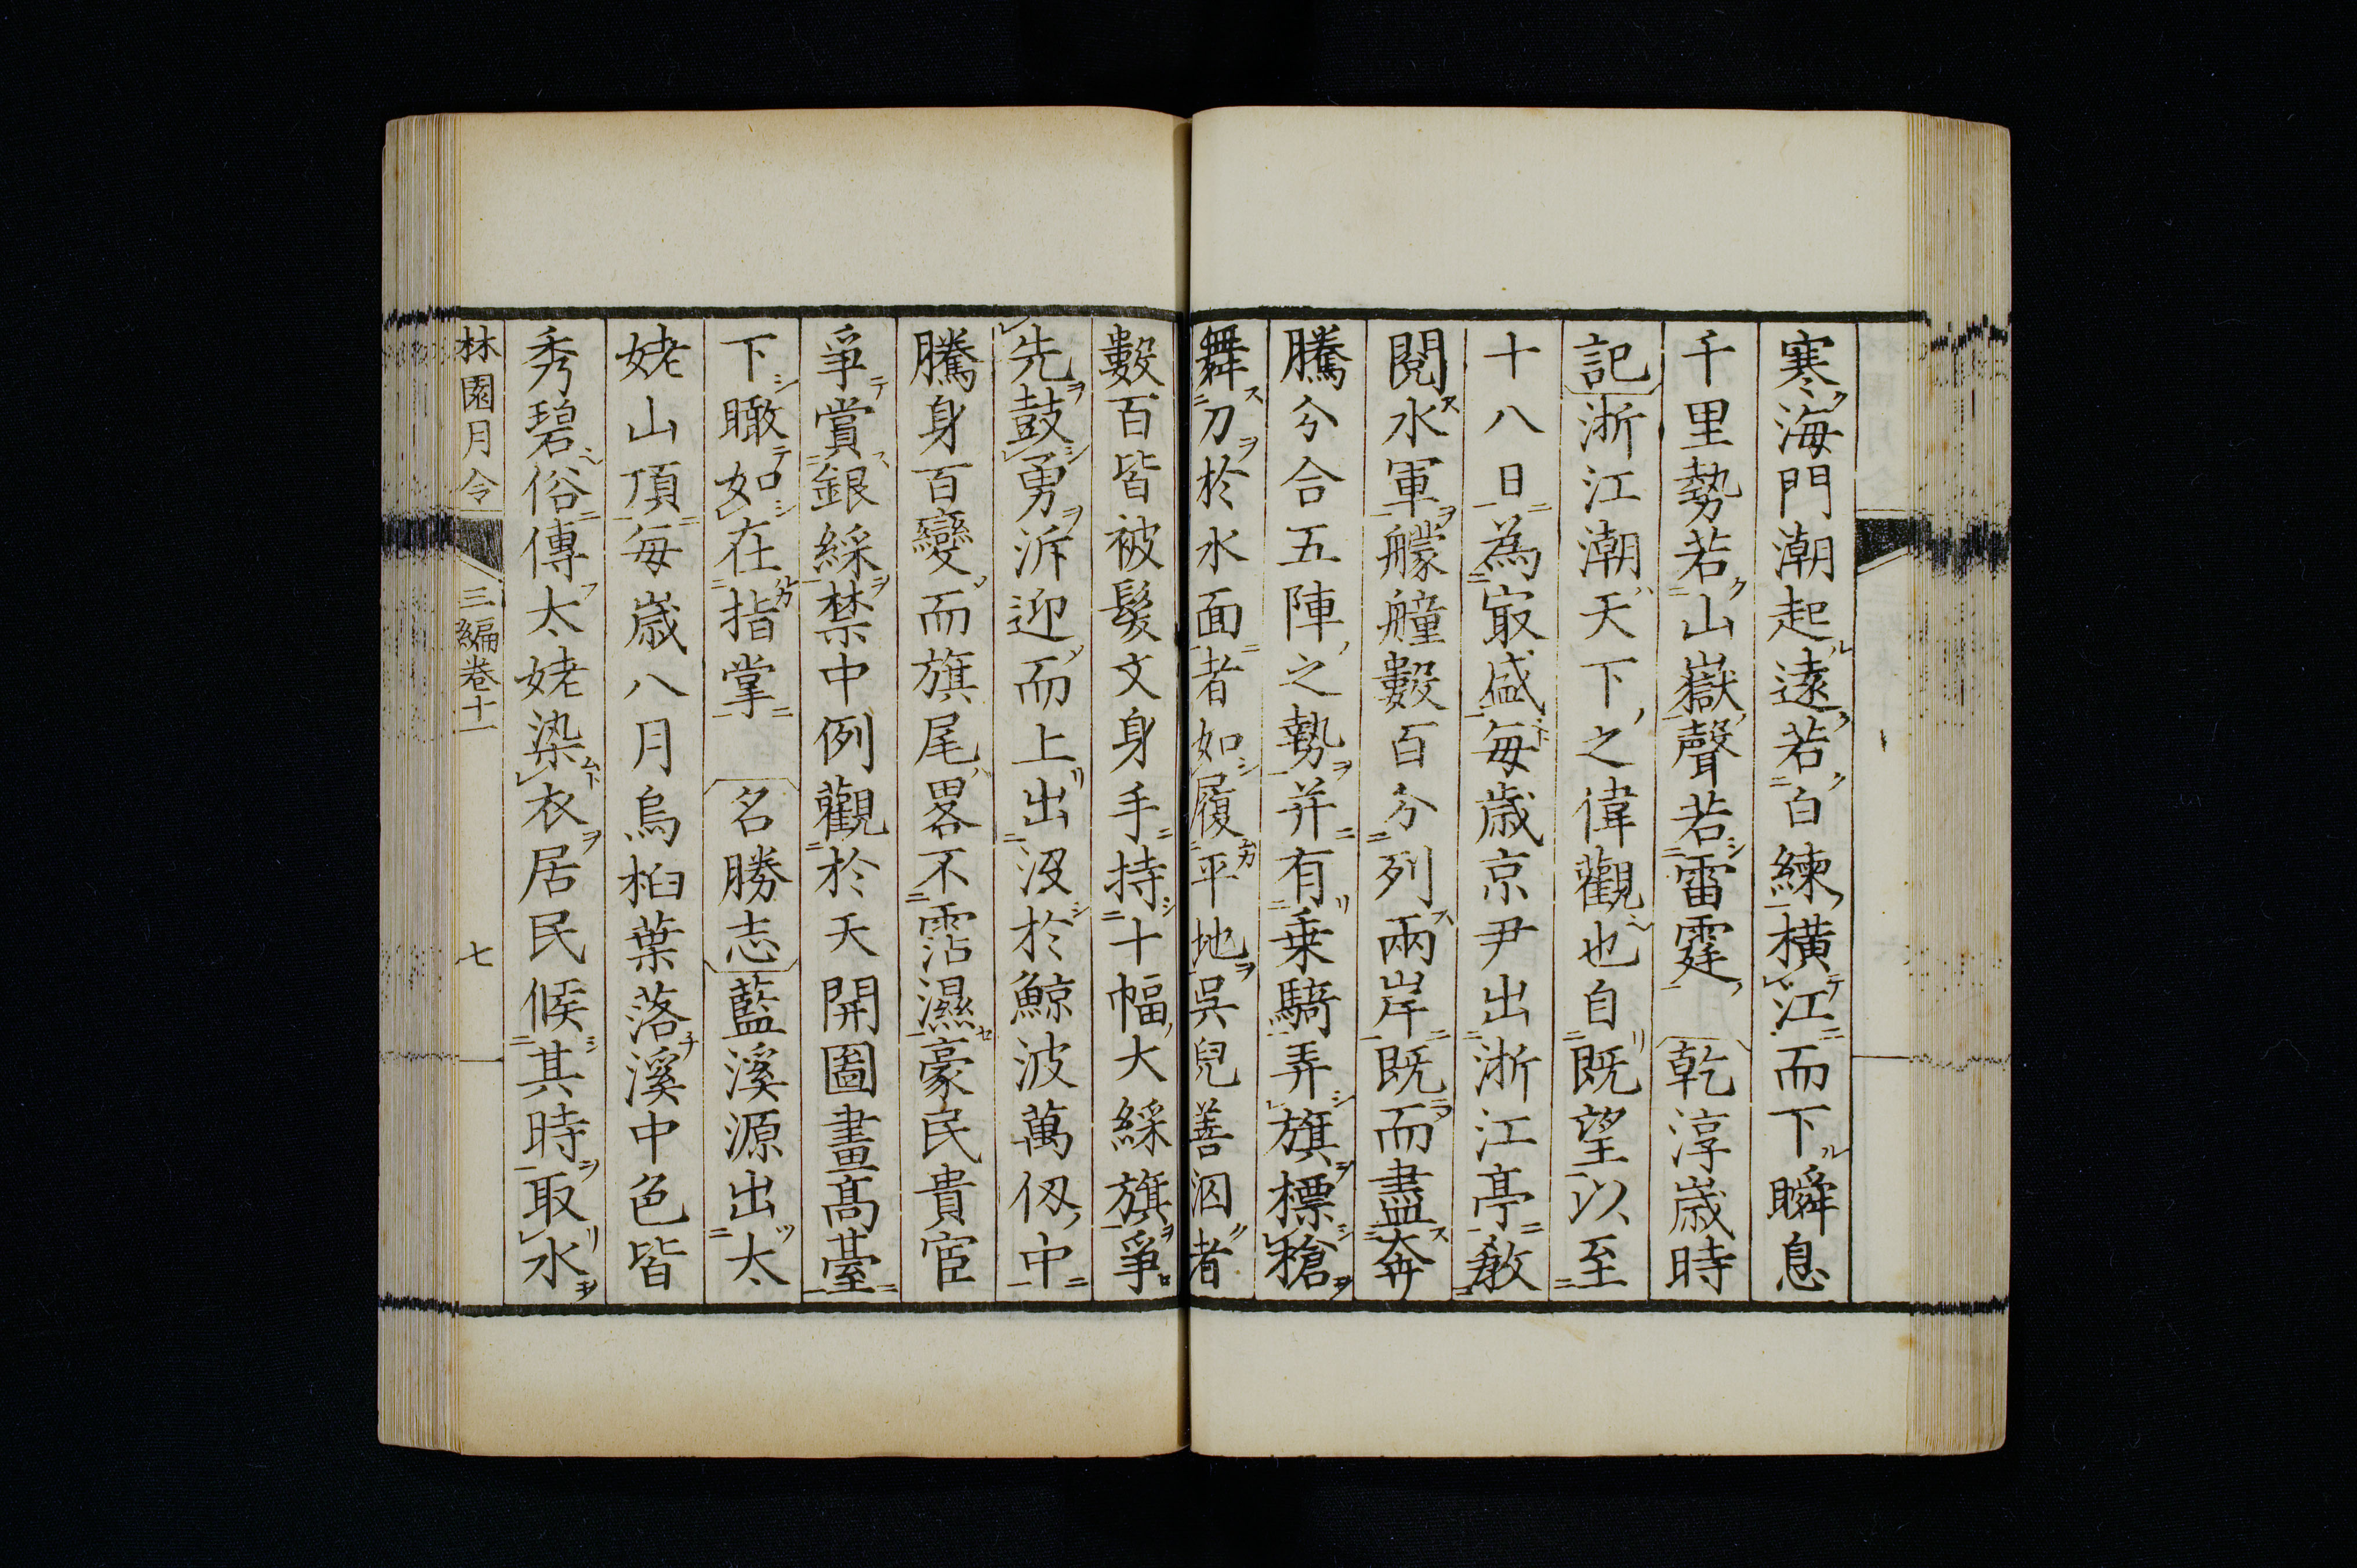 寒海門潮起遠若白練橫江而下瞬息
千里勢若山嶽聲若雷霆 乾淳歲時
記浙江潮天下之偉觀也自既望以至
十八日為㝡盛每歲京尹出浙江亭教
閱水軍艨艟數百分列兩岸既而盡奔
騰分合五陣之勢并有乗騎弄旗標槍
舞刀於水面者如履平地吳兒善泅者
數百皆被髮文身手持十幅大綵旗爭
先鼓勇泝迎而上出沒於鯨波萬仭中
騰身百變而旗尾畧不霑濕豪民貴宦
爭賞銀綵禁中例觀於天開圖畫髙臺
下瞰如在指掌 名勝志藍溪源出太
姥山頂每歲八月烏桕葉落溪中色皆
秀碧俗傳太姥染衣居民候其時取水
林園月令 三編卷十一 七